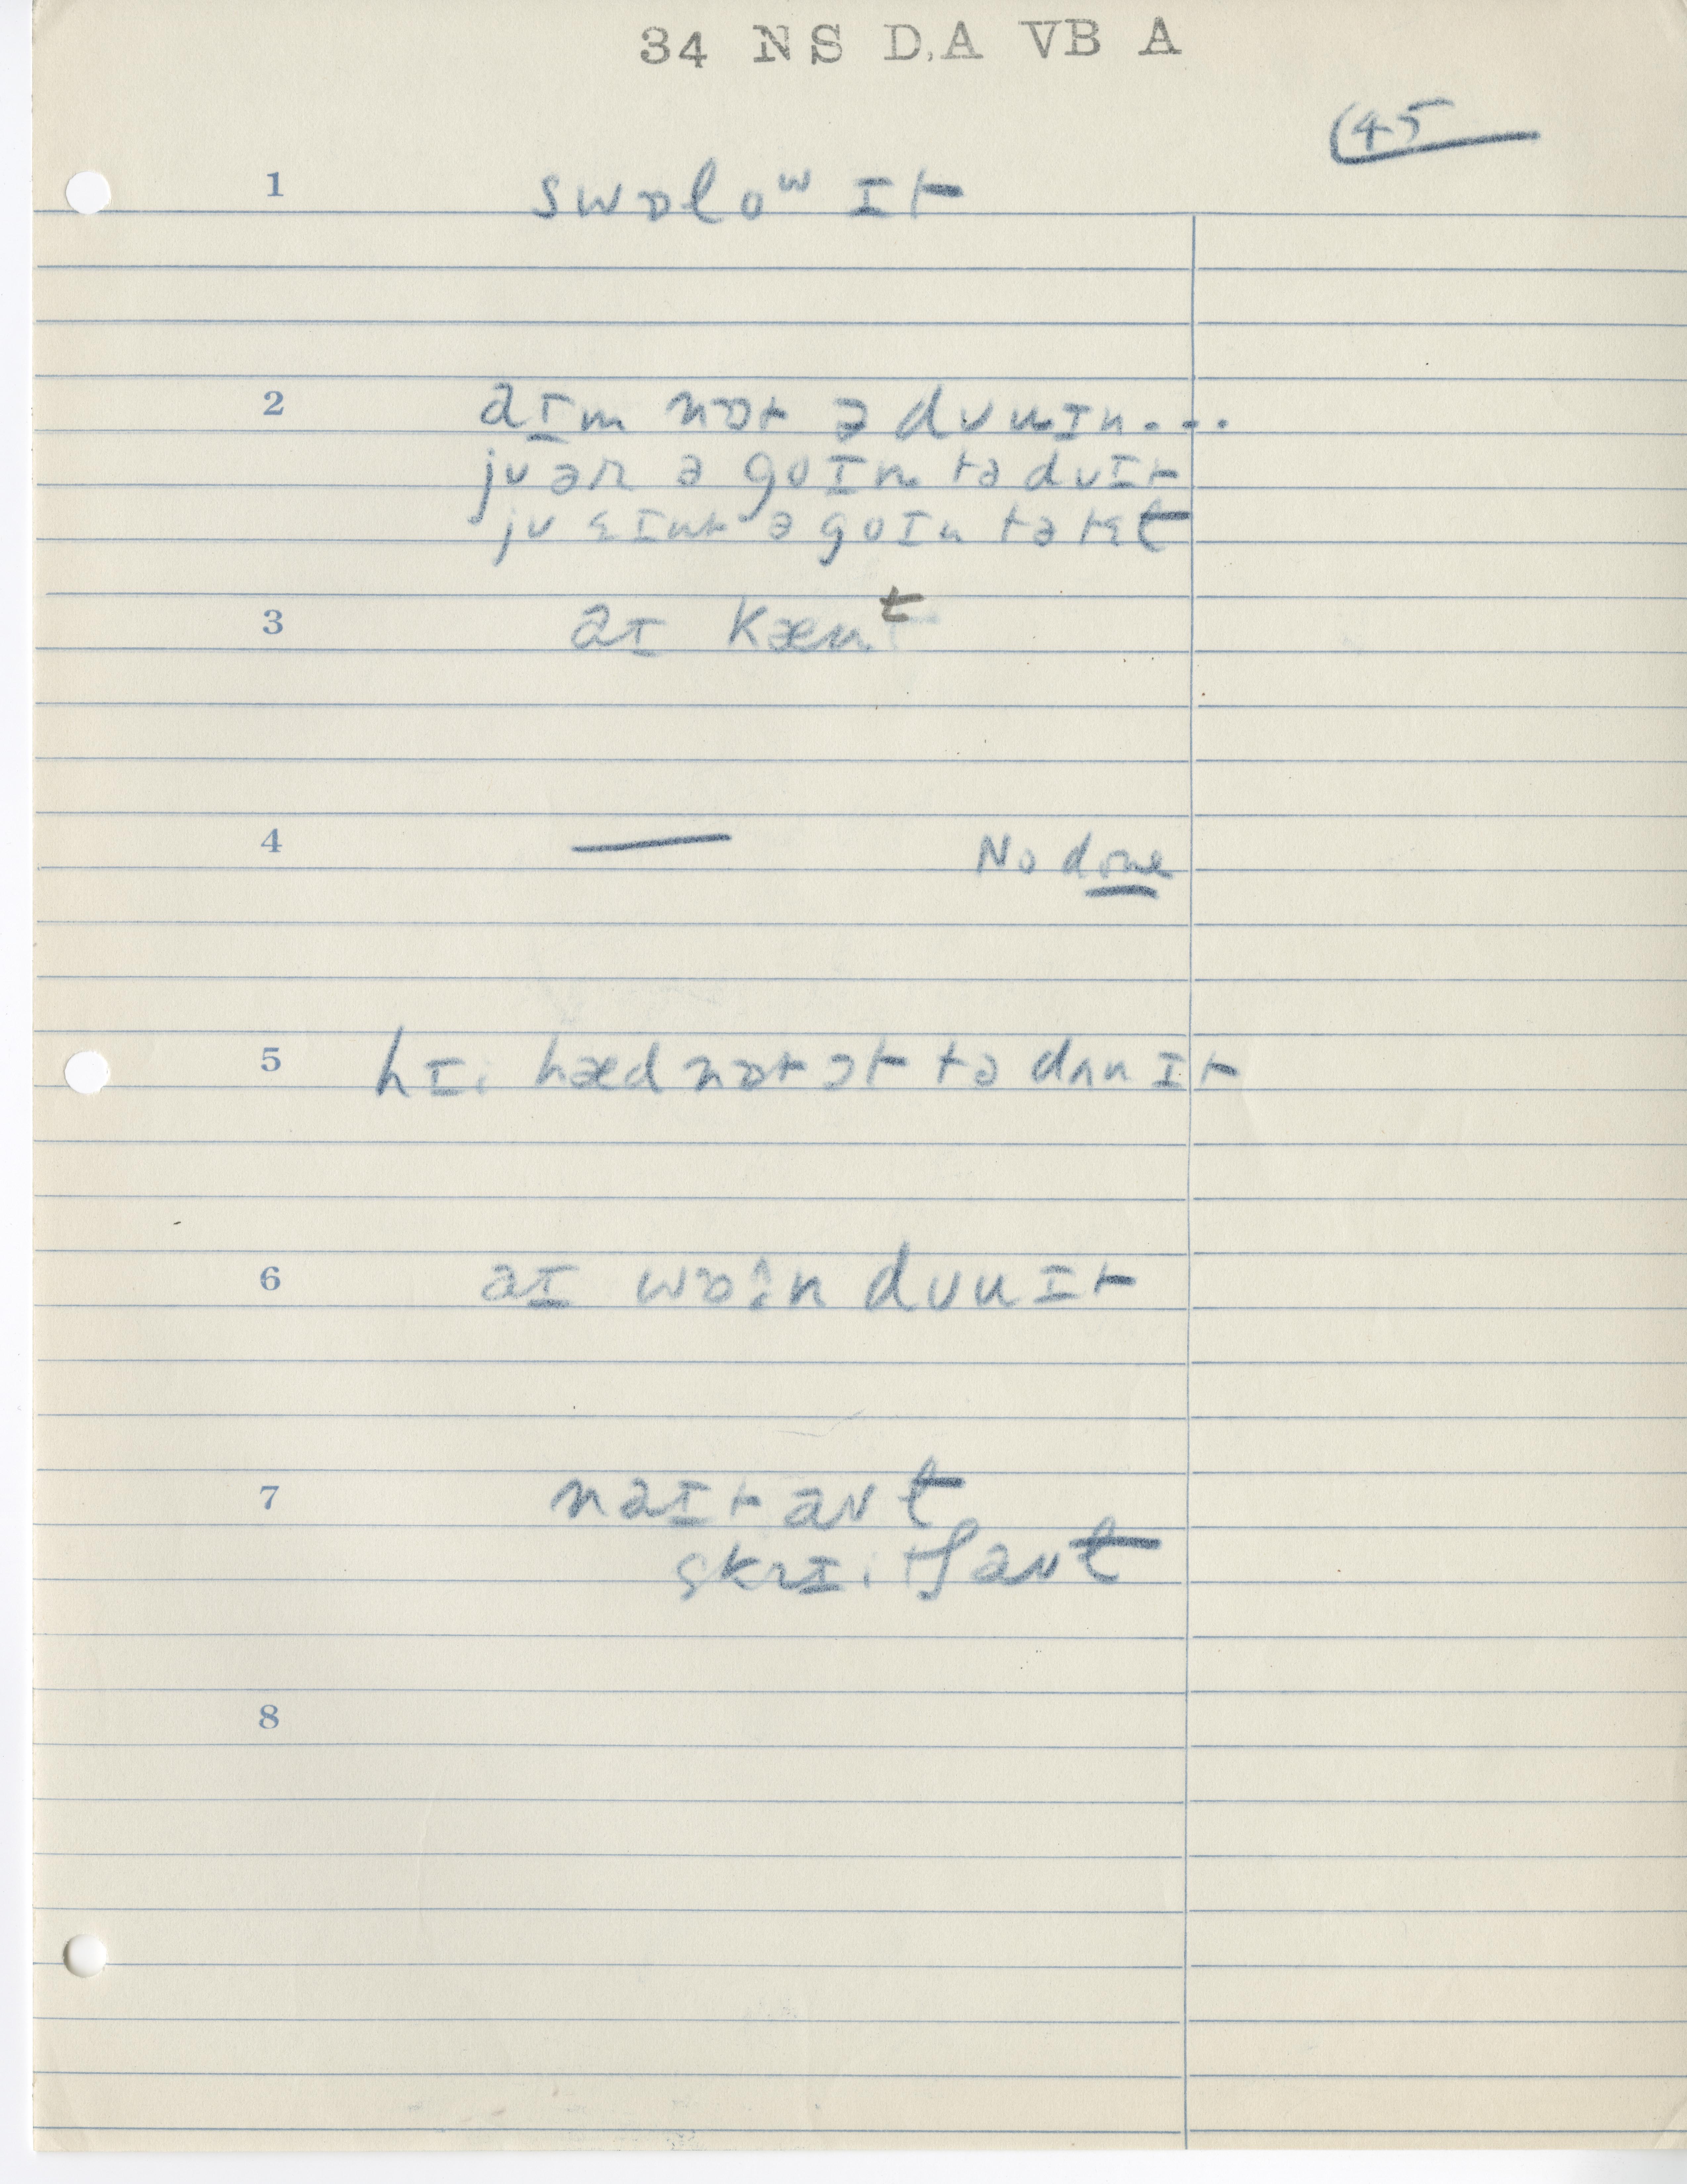 34 NS D.A VB A
(45
1 swɒloʷ ɪt
2 aɪm nɒt ə duuɪn...
ju ər ə goɪn tə duɪt
ju ɛɪnt ə goɪn tə tɛt
3 aɪ kænt
4 — No done
5 hɪ. hæd nɒt ɔt tə dʌn ɪt
6 aɪ duu ɪt
7 naɪt aut
skrɪ.tʃ aut
8